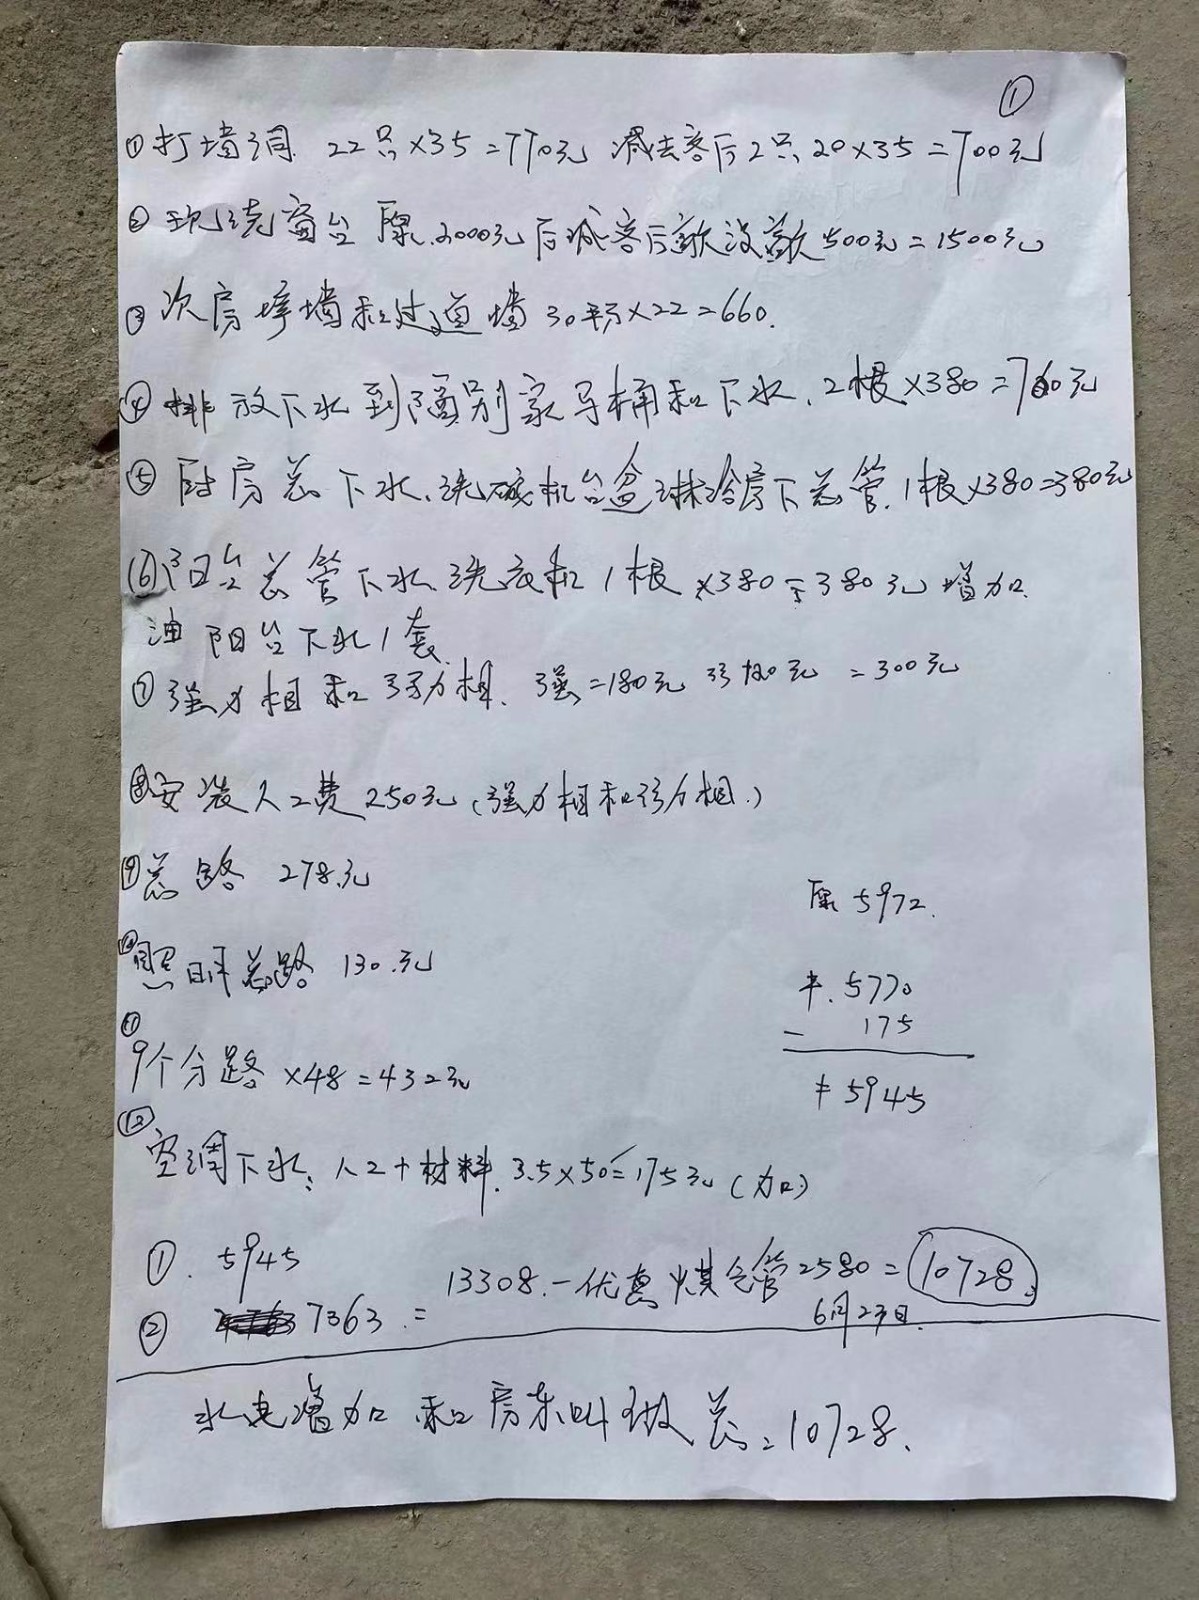 ①
①打墙洞 22只×35=770元 减去客厅2只 20×35=700元
②现浇窗台 原2000元后减客厅敲没敲500元=1500元
③次房 墙和过道墙 30平方×22=660.
④排放下水到隔别家马桶和下水. 2根×380=760元
⑤厨房总下水.洗碗机台盆淋浴房下总管. 1根×380=380元
⑥阳台总管下水洗衣机1根×380=380元增加
油阳台下水1套
⑦强力相和弱力相. 强=180元 弱120元 =300元
⑧安装人工费250元(强力相和弱力相.)
⑨总路 278元
原5972.
⑩照明总路 130.元
5770
- 175
⑪
9个分路×48=432元
5945
⑫
空调下水: 人工+材料. 3.5×50=175元(加)
①. 5945
13308.-优惠煤气管2580=10728.
② 7363.=
6月23日
水电增加和房东叫做总=10728.